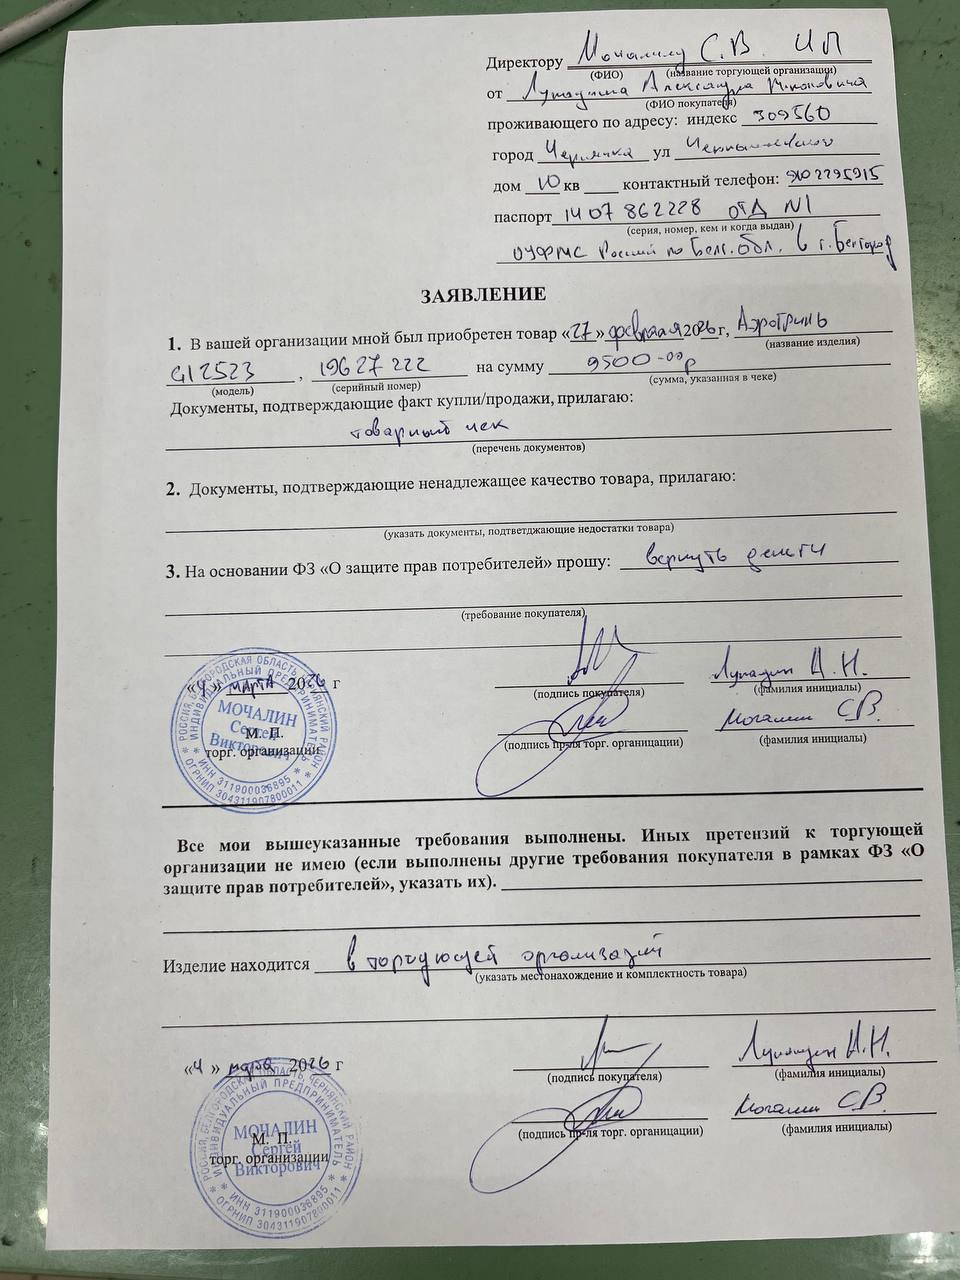 Директору Мочалину С.В. ИП
(ФИО) (название торгующей организации)
от Александра
(ФИО покупателя)
проживающего по адресу: индекс 309560
город Чернянка ул Чернышевского
дом 10 кв ____ контактный телефон: 9102295915
паспорт 1407 862228 ОТД N1
(серия, номер, кем и когда выдан)
ОУФМС России по Белг. обл. в г. Белгород
ЗАЯВЛЕНИЕ
1. В вашей организации мной был приобретен товар «27» февраля 2026 г, Аэрогриль
(название изделия)
GI2523, 19627222 на сумму 9500-00р
(модель) (серийный номер) (сумма, указанная в чеке)
Документы, подтверждающие факт купли/продажи, прилагаю:
товарный чек
(перечень документов)
2. Документы, подтверждающие ненадлежащее качество товара, прилагаю:
(указать документы, подтветджающие недостатки товара)
3. На основании ФЗ «О защите прав потребителей» прошу: вернуть деньги
(требование покупателя)
«4» марта 2026 г А.Н.
(подпись покупателя) (фамилия инициалы)
Мочалин С.В.
(подпись пр-ля торг. органицации) (фамилия инициалы)
М. П.
торг. организации
РОССИЯ, БЕЛГОРОДСКАЯ ОБЛАСТЬ, ЧЕРНЯНСКИЙ РАЙОН
ИНДИВИДУАЛЬНЫЙ ПРЕДПРИНИМАТЕЛЬ
МОЧАЛИН
Сергей
Викторович
ИНН 311900036895
ОГРНИП 304311907800011
Все мои вышеуказанные требования выполнены. Иных претензий к торгующей
организации не имею (если выполнены другие требования покупателя в рамках ФЗ «О
защите прав потребителей», указать их).
Изделие находится в торгующей организаций
(указать местонахождение и комплектность товара)
«4» марта 2026 г А.Н.
(подпись покупателя) (фамилия инициалы)
Мочалин С.В.
(подпись пр-ля торг. органицации) (фамилия инициалы)
М. П.
торг. организации
РОССИЯ, БЕЛГОРОДСКАЯ ОБЛАСТЬ, ЧЕРНЯНСКИЙ РАЙОН
ИНДИВИДУАЛЬНЫЙ ПРЕДПРИНИМАТЕЛЬ
МОЧАЛИН
Сергей
Викторович
ИНН 311900036895
ОГРНИП 304311907800011